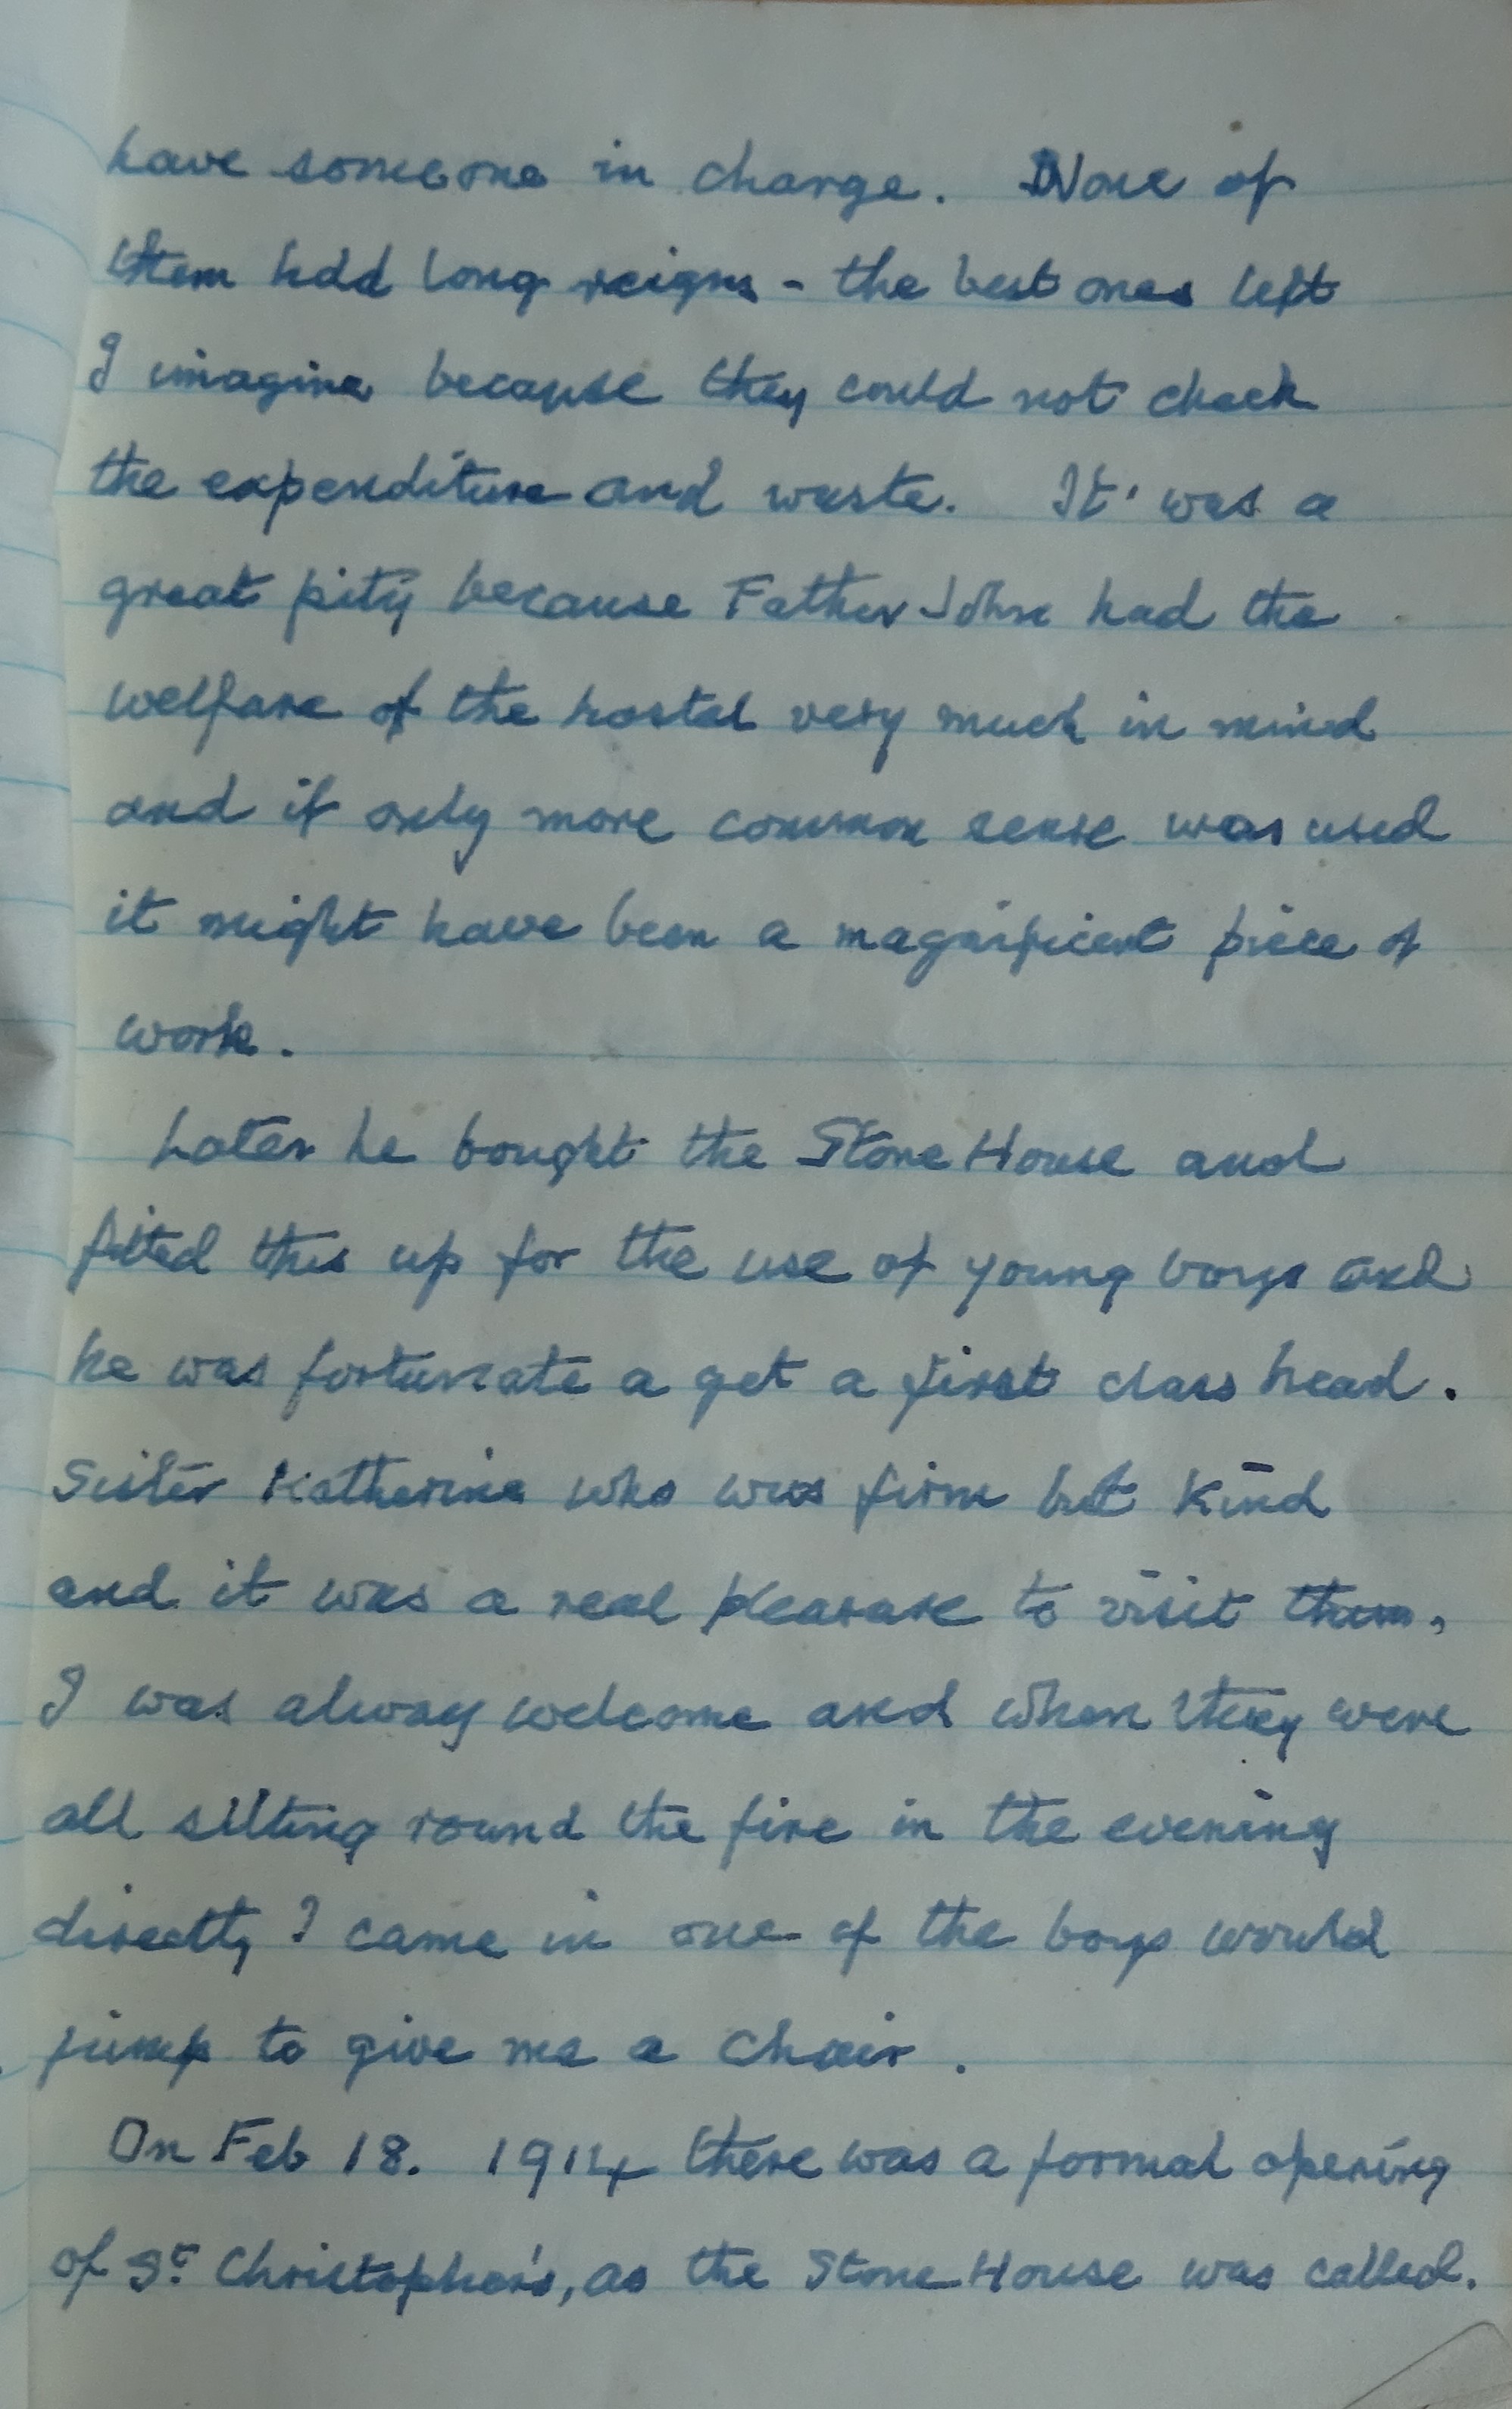 have someone in charge. None of
them had long reigns - the best ones left
I imagine because they could not check
the expenditure and waste. It was a
great pity because Father John had the
welfare of the hostel very much in mind
and if only more common sense was used
it might have been a magnificent piece of
work.
Later he bought the Stone House and
fitted this up for the use of young boys and
he was fortunate a get a first class head.
Sister Katherine who was firm but kind
and it was a real pleasure to visit them,
I was alway welcome and when they were
all sitting round the fire in the evening
directly I came in one of the boys would
jump to give me a chair.
On Feb 18. 1914 there was a formal opening
of St Christopher's, as the Stone House was called.